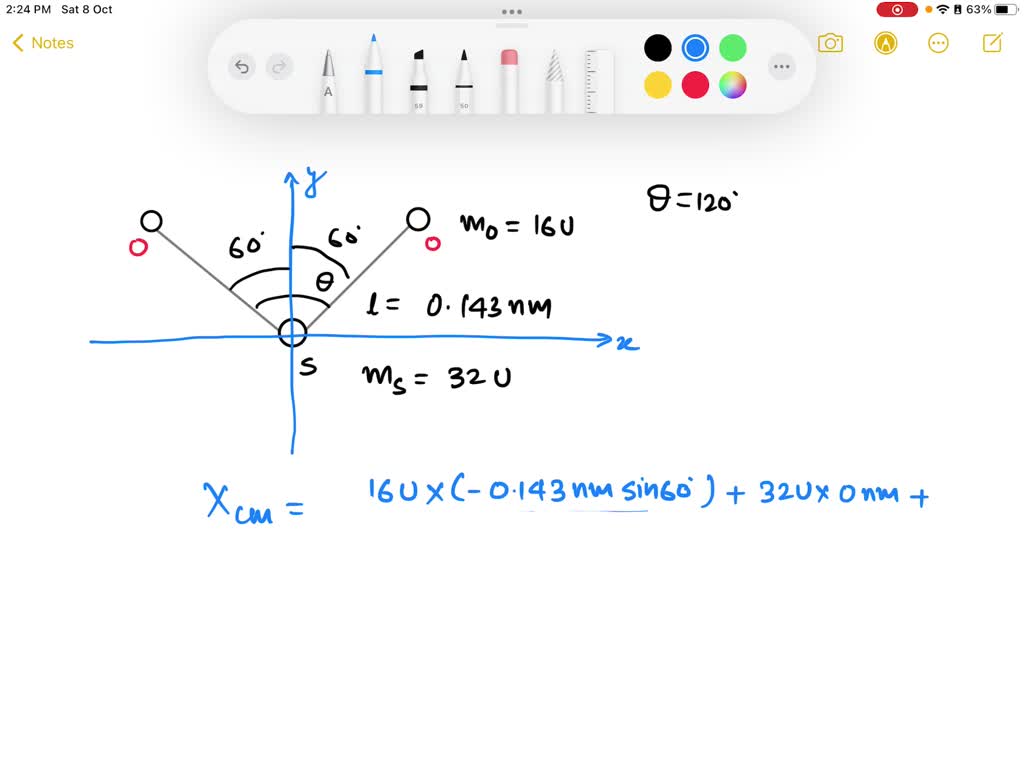 2:24 PM Sat 8 Oct
63%
Notes
A
59
50
y
θ = 120°
60°
60°
O
O
m₀ = 16U
θ
l = 0.143 nm
x
S
mₛ = 32 U
Xcm = 16U × (- 0.143 nm sin60°) + 32U × 0 nm +